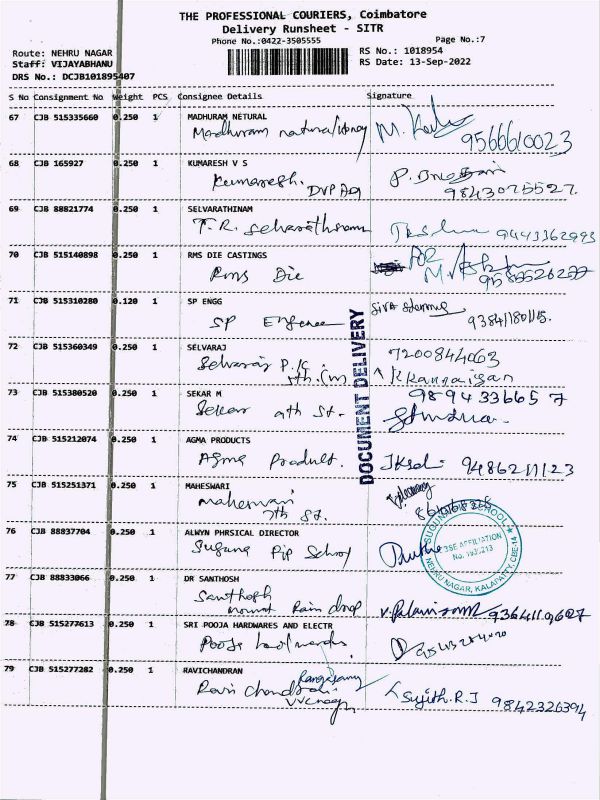 THE PROFESSIONAL COURIERS, Coimbatore
Delivery Runsheet - SITR
Phone No.:0422-3505555 Page No.:7
Route: NEHRU NAGAR RS No.: 1018954
Staff: VIJAYABHANU RS Date: 13-Sep-2022
DRS No.: DCJB101895407
S No Consignment No Weight PCS Consignee Details Signature
67 CJB 515335660 0.250 1 MADHURAM NETURAL
Madhuram natural M.
9566610023
68 CJB 165927 0.250 1 KUMARESH V S
Kumaresh. P.
9843075527
69 CJB 88821774 0.250 1 SELVARATHINAM
T.R. Selvarathinam 9443362993
70 CJB 515140898 0.250 1 RMS DIE CASTINGS
Rms Die M.
71 CJB 515310280 0.120 1 SP ENGG
SP Siva
72 CJB 515360349 0.250 1 SELVARAJ
Selvaraj 7200844063
5th
73 CJB 515380520 0.250 1 SEKAR M
Sekar 9th St. 9894336657
74 CJB 515212074 0.250 1 AGMA PRODUCTS
Agma Product. 9486211123
75 CJB 515251371 0.250 1 MAHESWARI
maheswari
7th St.
76 CJB 88837704 0.250 1 ALWYN PHRSICAL DIRECTOR
Suguna Pip School
77 CJB 88833066 0.250 1 DR SANTHOSH
Santhosh
mount Rain drop 9364119627
78 CJB 515277613 0.250 1 SRI POOJA HARDWARES AND ELECTR
Pooja hardwares
79 CJB 515277282 0.250 1 RAVICHANDRAN
Rangasamy
Ravi Chandran Sujith.R.J 9842326394
DOCUMENT DELIVERY
SCHOOL
CBSE AFFILIATION
No.
NEHRU NAGAR, KALAPATTY, CBE-14